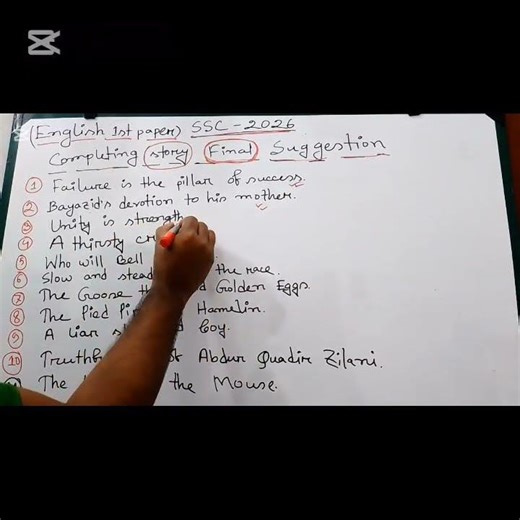 (English 1st paper) SSC-2026
Completing story Final Suggestion
1 Failure is the pillar of success.
2 Bayazid's devotion to his mother.
3 Unity is strength
4 A thirsty
5 Who will Bell
6 Slow and the race.
7 The Goose Golden Eggs.
8 The Pied Hamelin.
9 A Liar boy.
10 Abdur Quadir Zilani.
The the Mouse.